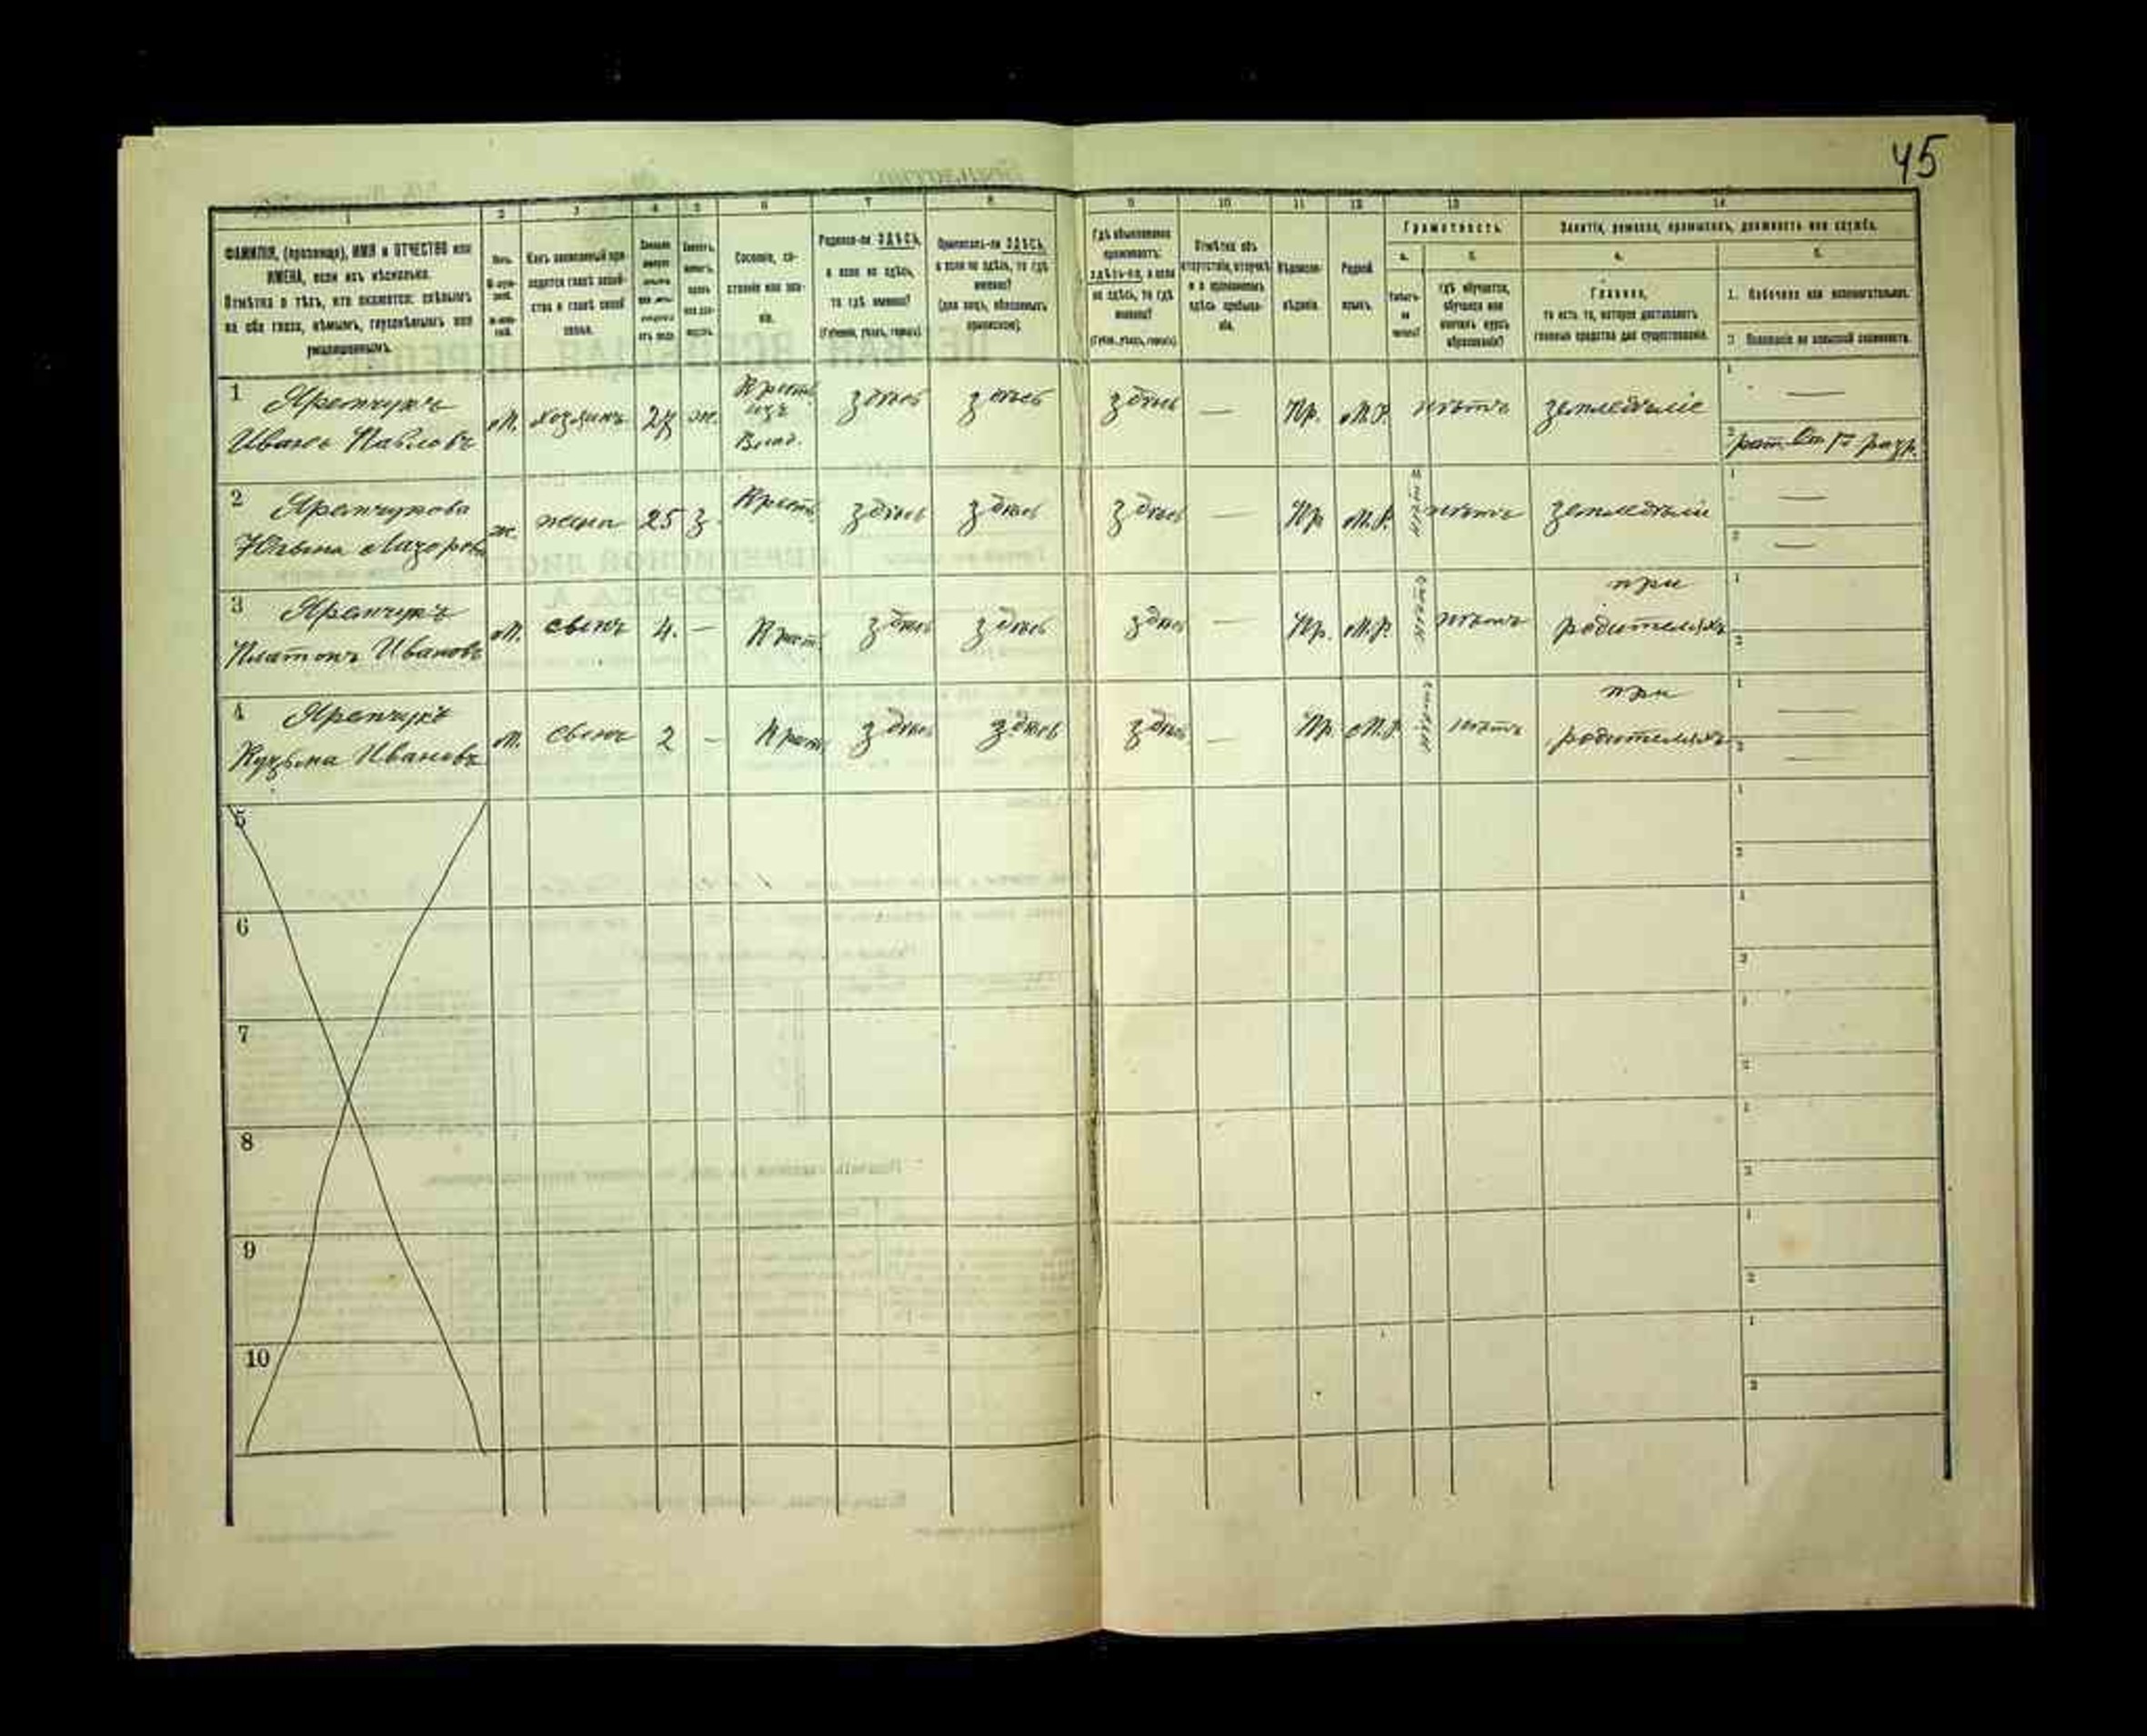 45
1 2 3 4 5 6 7 8 9 10 11 12 13 14
ФАМИЛІЯ, (прозвище), ИМЯ и ОТЧЕСТВО или
ИМЕНА, если ихъ нѣсколько.
Отмѣтка о тѣхъ, кто окажется: слѣпымъ
на оба глаза, нѣмымъ, глухонѣмымъ или
умалишеннымъ.
Полъ.
Какъ записанный при-
ходится главѣ хозяй-
ства и главѣ своей
семьи.
Сословіе, со-
стояніе или зва-
ніе.
Родился-ли ЗДѢСЬ,
а если не здѣсь,
то гдѣ именно?
(Губернія, уѣздъ, городъ)
Приписанъ-ли ЗДѢСЬ,
а если не здѣсь, то гдѣ
именно?
(для лицъ, обязанныхъ
припиской)
Гдѣ обыкновенно
проживаетъ:
здѣсь-ли, а если
не здѣсь, то гдѣ
именно?
(Губ., уѣздъ, городъ)
Отмѣтка объ
отсутствіи, отлучкѣ
и о временномъ
здѣсь пребыва-
ніи.
Вѣроиспо-
вѣданіе.
Родной
языкъ.
Грамотность.
а. б.
Умѣетъ-
ли
читать?
гдѣ обучается,
обучался или
кончилъ курсъ
образованія?
Занятіе, ремесло, промыселъ, должность или служба.
а. б.
Главное,
то есть то, которое доставляетъ
главныя средства для существованія.
1. Побочное или вспомогательное.
2. Положеніе по воинской повинности.
1 Яремчукъ
Иванъ Павловъ
м. хозяинъ 27 ж. Крест. изъ Влад. здѣсь здѣсь здѣсь — Пр. М.Р. нѣтъ земледѣліе 1 —
2 рат. Оп. 1го разр.
2 Яремчукова
Ульяна Лазорова
ж. жена 25 з. Крест. здѣсь здѣсь здѣсь — Пр. М.Р. нѣтъ нѣтъ земледѣліе 1 —
2 —
3 Яремчукъ
Платонъ Ивановъ
м. сынъ 4. — Крест. здѣсь здѣсь здѣсь — Пр. М.Р. нѣтъ нѣтъ при родителяхъ 1
2
4 Яремчукъ
Кузьма Ивановъ
м. сынъ 2 — Крест. здѣсь здѣсь здѣсь — Пр. М.Р. нѣтъ нѣтъ при родителяхъ 1 —
2 —
5 1
2
6 1
2
7 1
2
8 1
2
9 1
2
10 1
2